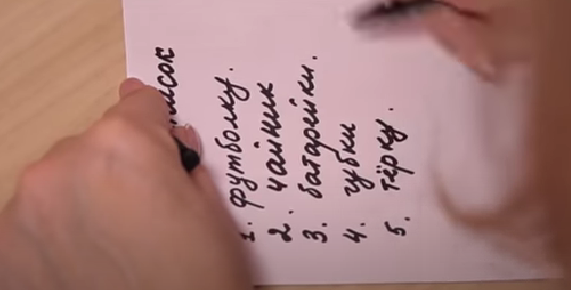 исок
1. футболку.
2. чайник
3. батарейки.
4. губки
5. тёрку.